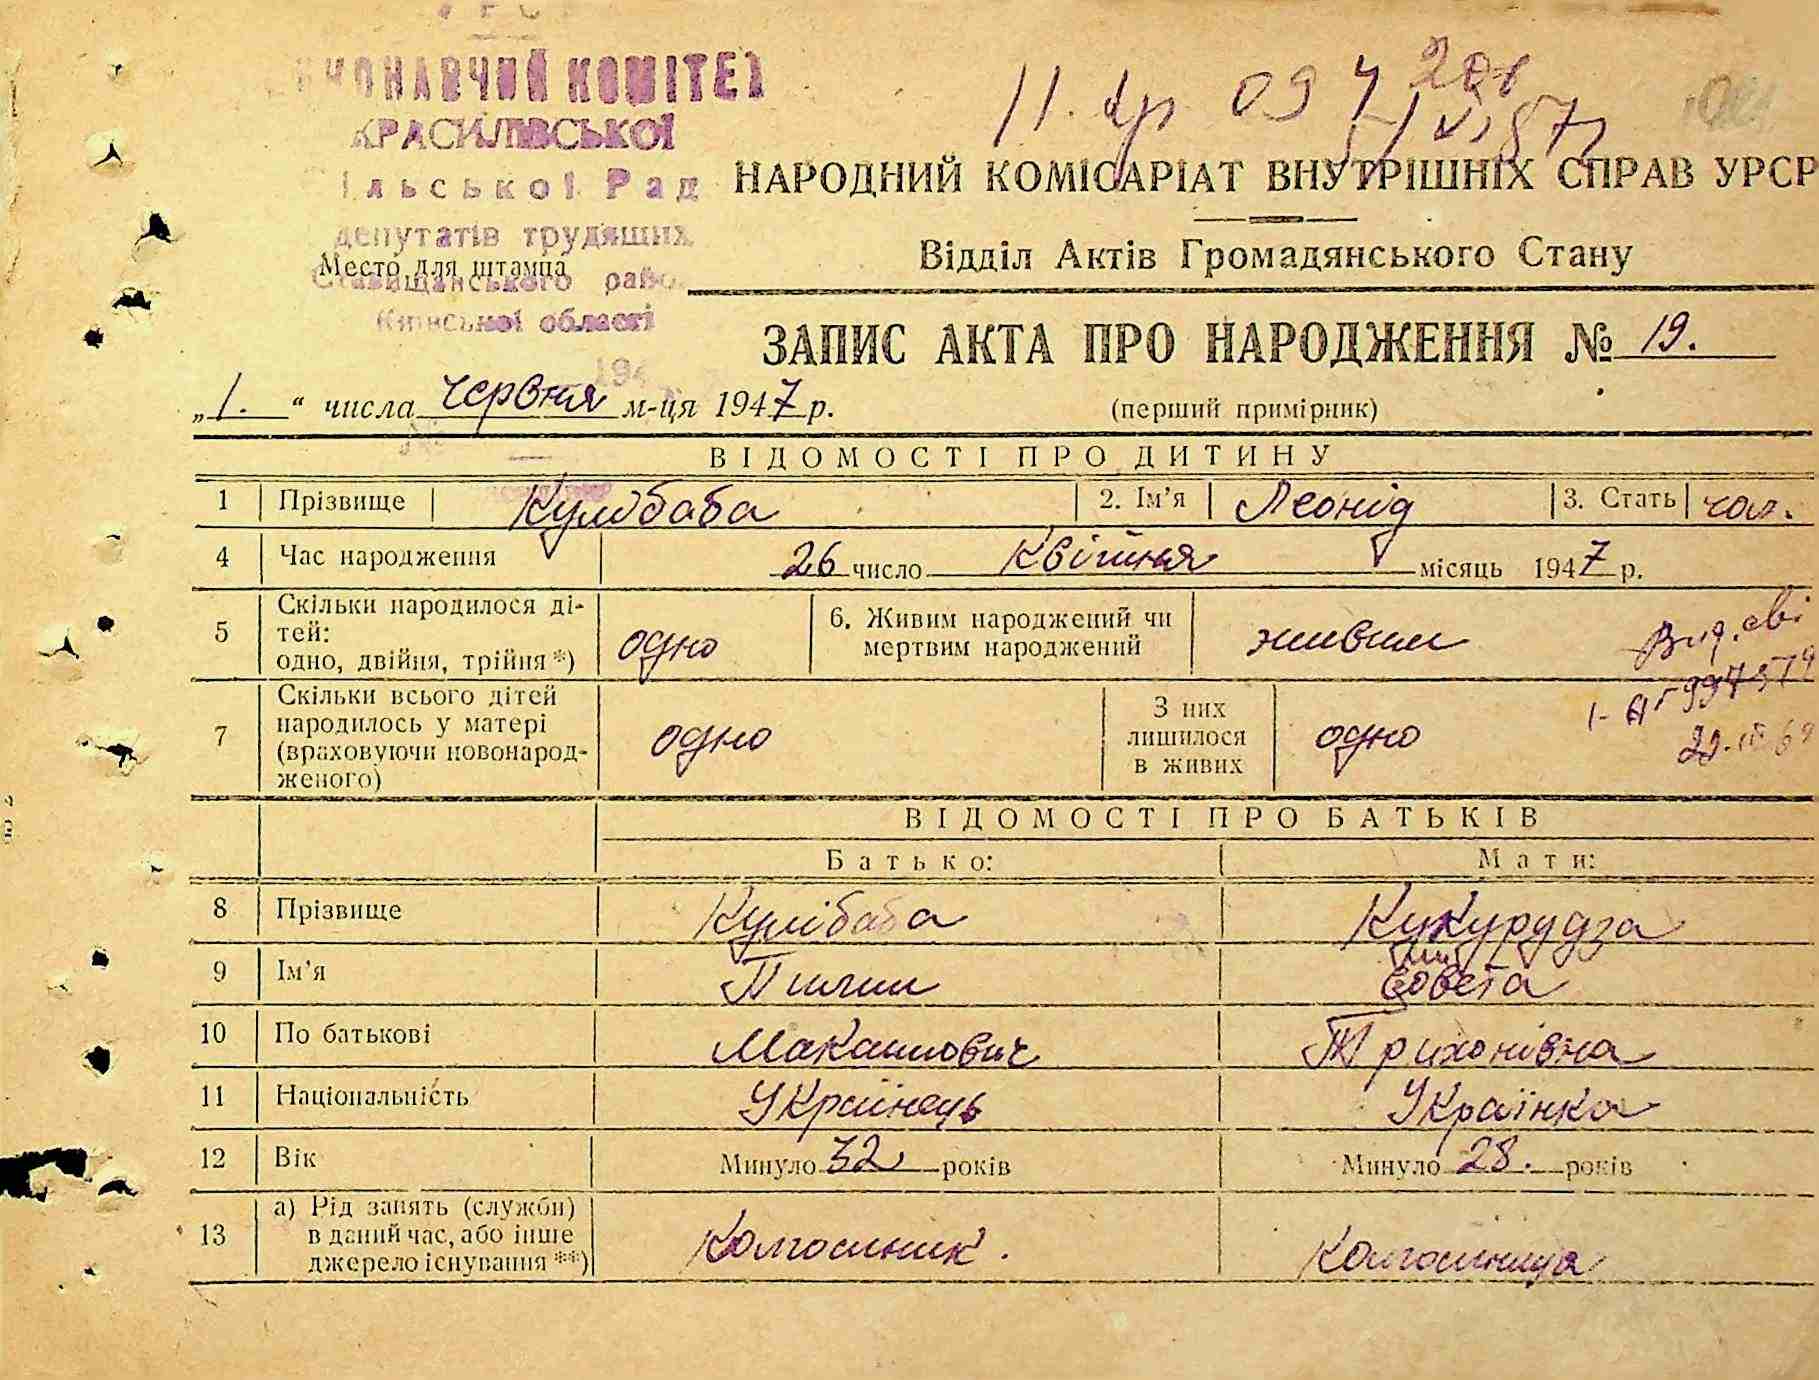 КОМІТЕТ
КРАСИЛІВСЬКОЇ
депутатів трудящих
Место для штампа
Ставищанського
Київської області
НАРОДНИЙ КОМІСАРІАТ ВНУТРІШНІХ СПРАВ УРСР
Відділ Актів Громадянського Стану
ЗАПИС АКТА ПРО НАРОДЖЕННЯ № 19.
„1.“ числа червня м-ця 1947 р.
(перший примірник)
ВІДОМОСТІ ПРО ДИТИНУ
1 Прізвище Кулібаба 2. Ім’я Леонід 3. Стать чол.
4 Час народження 26 число Квітня місяць 1947 р.
5 Скільки народилося ді-
тей:
одно, двійня, трійня*) одно
6. Живим народжений чи
мертвим народжений живим
7 Скільки всього дітей
народилось у матері
(враховуючи новонарод-
женого) одно
З них
лишилося
в живих одно
ВІДОМОСТІ ПРО БАТЬКІВ
Батько: Мати:
8 Прізвище Кулібаба Кукурудза
9 Ім’я Пилип
10 По батькові Трихонівна
11 Національність Українець Українка
12 Вік Минуло 32 років Минуло 28. років
13 а) Рід занять (служби)
в даний час, або інше
джерело існування **) Колгоспник. Колгоспниця